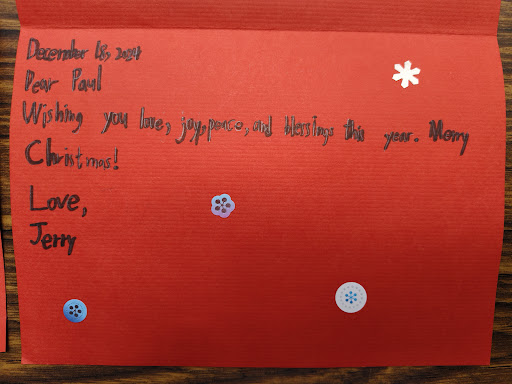 December 18, 2024
Dear Paul
Wishing you love, joy, peace, and blessings this year. Merry
Christmas!
Love,
Jerry